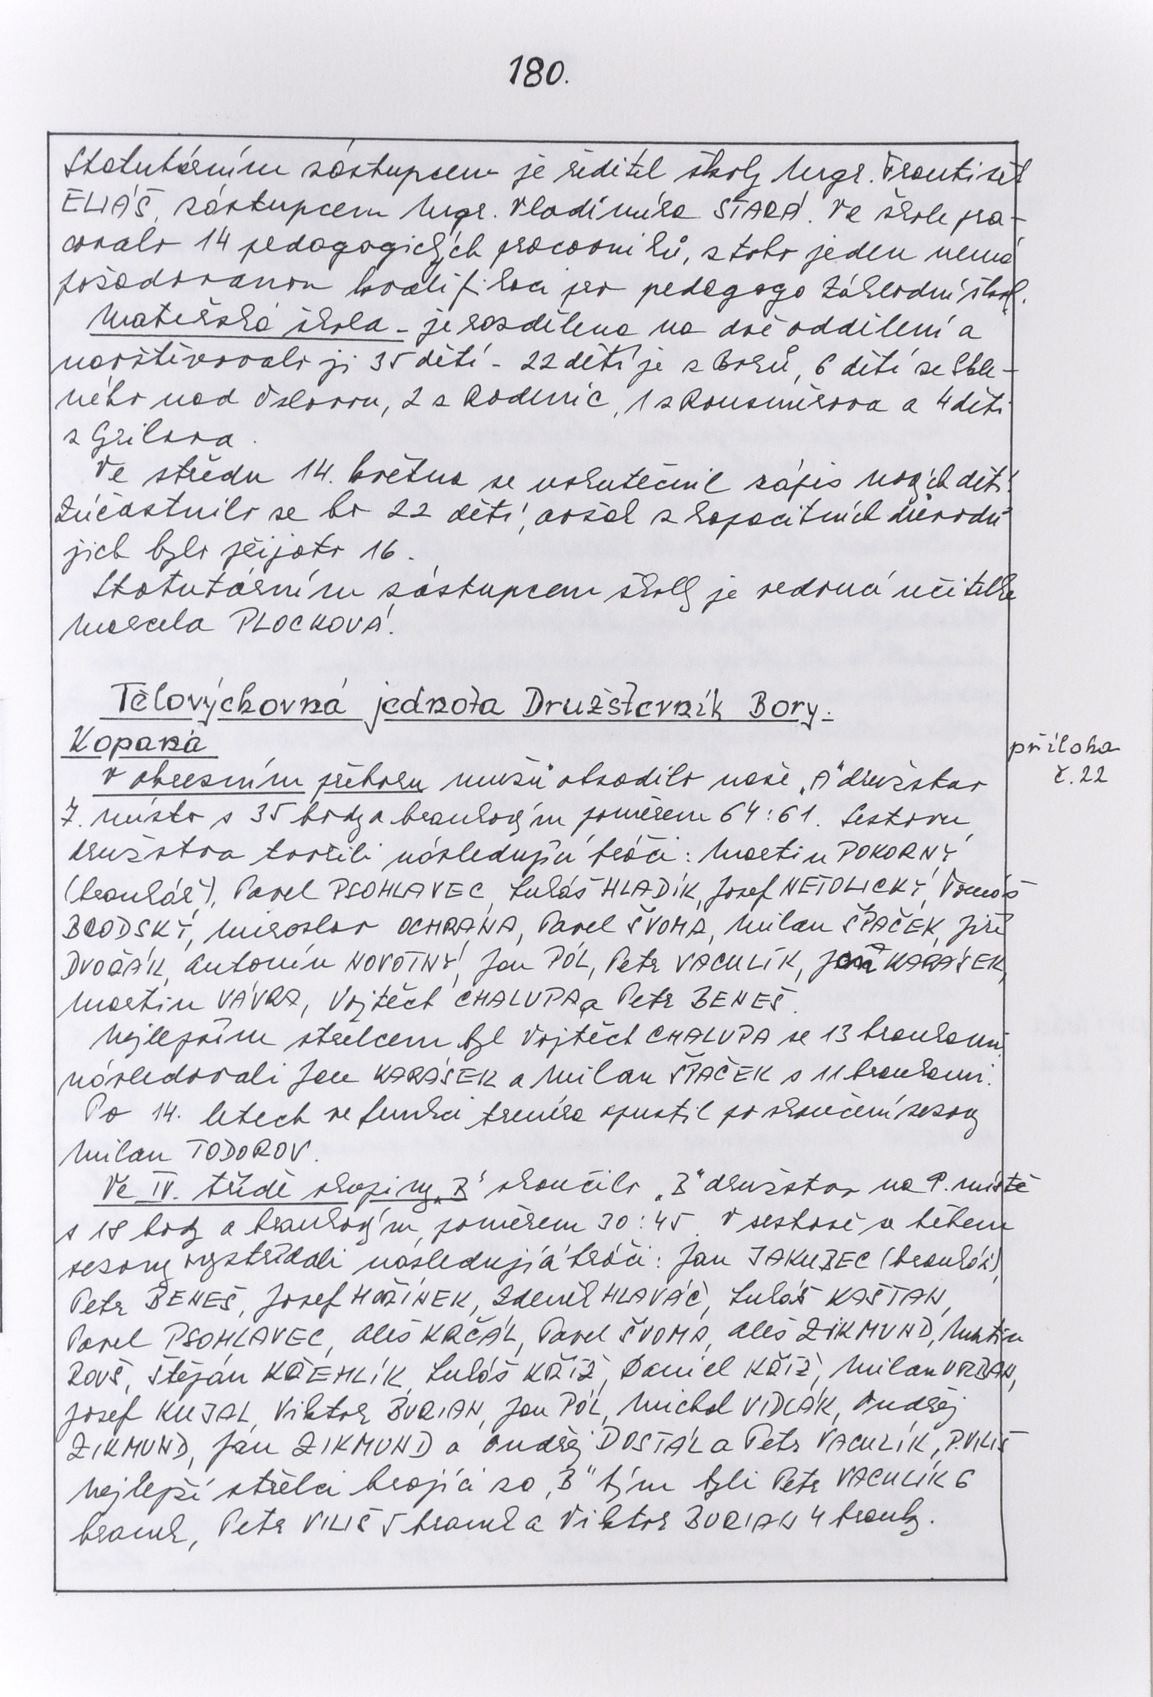 180.
Statutárním zástupcem je ředitel školy Mgr. František
ELIÁŠ, zástupcem Mgr. Vladimíra STARÁ. Ve škole pra-
covalo 14 pedagogických pracovníků, z toho jeden nemá
požadovanou kvalifikaci pro pedagoga základní škol.
Mateřská škola - je rozdělena na dvě oddělení a
navštěvovalo ji 35 dětí - 22 dětí je z Borů, 6 dětí ze Skle-
ného nad Oslavou, 2 z Radenic, 1 z Rousměrova a 4 děti
z Gzilova.
Ve středu 14. května se uskutečnil zápis nových dětí.
Zúčastnilo se ho 22 dětí, avšak z kapacitních důvodů
jich bylo přijato 16.
Statutárním zástupcem školy je vedoucí učitelka
Marcela PLOCKOVÁ.
Tělovýchovná jednota Družstevník Bory.
Kopaná
příloha
č. 22
V okresním přeboru mužů obsadilo naše „A" družstvo
7. místo s 35 body a brankovým poměrem 64:61. Sestavu
družstva tvořili následující hráči: Martin POKORNÝ
(brankář), Pavel PSOHLAVEC, Lukáš HLADÍK, Josef NETOLICKÝ, Tomáš
BRODSKÝ, Miroslav OCHRANA, Pavel ŠVOMA, Milan ŠPAČEK, Jiří
DVOŘÁK, Antonín NOVOTNÝ, Jan PÓL, Petr VACULÍK, Jan KARÁSEK,
Martin VÁVRA, Vojtěch CHALUPA a Petr BENEŠ.
Nejlepším střelcem byl Vojtěch CHALUPA se 13 brankami,
následovali Jan KARÁSEK a Milan ŠPAČEK s 11 brankami.
Po 14. letech ve funkci trenéra opustil po skončení sezony
Milan TODOROV.
Ve IV. třídě skupiny „B" skončilo „B" družstvo na 9. místě
s 18 body a brankovým poměrem 30:45. V sestavě se během
sezony vystřídali následující hráči: Jan JAKUBEC (brankář),
Petr BENEŠ, Josef HOŘÍNEK, Zdeněk HLAVÁČ, Lukáš KAŠTAN,
Pavel PSOHLAVEC, Aleš KRČÁL, Pavel ŠVOMA, Aleš ZIKMUND, Martin
ROUŠ, Štěpán KŘEMLÍK, Lukáš KŘÍŽ, Daniel KŘÍŽ, Milan VRBAN,
Josef KUJAL, Viktor BURIAN, Jan PÓL, Michal VIDLÁK, Ondřej
ZIKMUND, Jan ZIKMUND a Ondřej DOSTÁL a Petr VACULÍK, P. VILIŠ
Nejlepší střelci hrající za „B" tým byli Petr VACULÍK 6
branek, Petr VILIŠ 5 branek a Viktor BURIAN 4 branky.